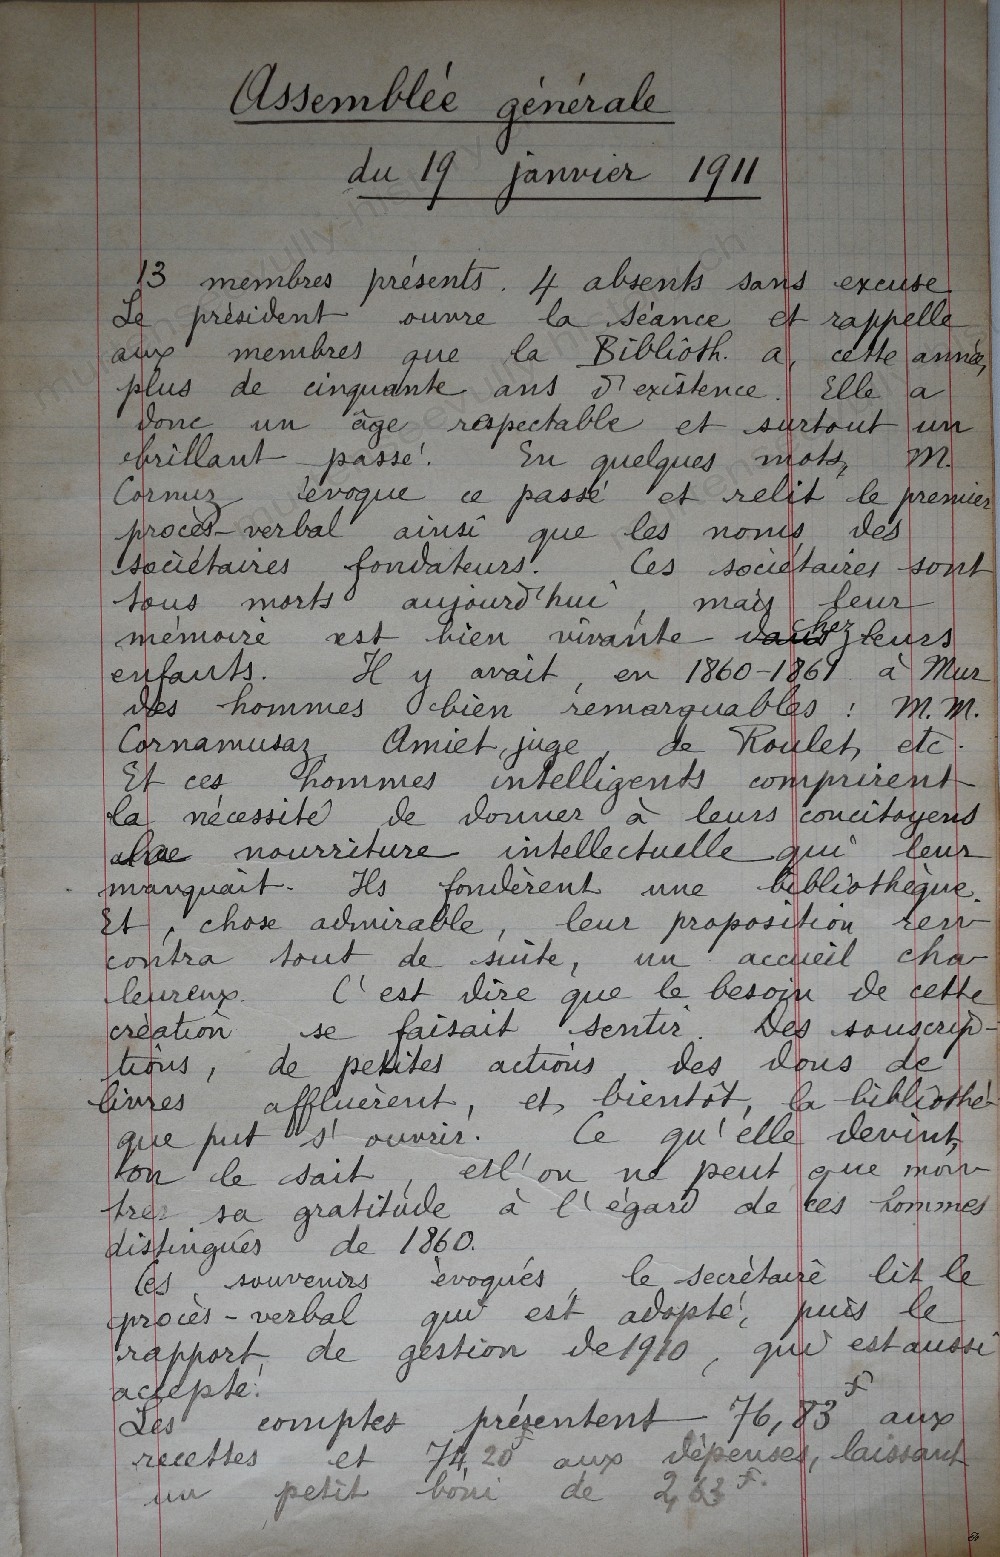 Assemblée générale
du 19 janvier 1911
13 membres présents. 4 absents sans excuse
Le président ouvre la séance et rappelle
aux membres que la Biblioth. a, cette année,
plus de cinquante ans d'existence. Elle a
donc un âge respectable et surtout un
brillant passé. En quelques mots, M.
Cornuz évoque ce passé et relit le premier
procès-verbal ainsi que les noms des
sociétaires fondateurs. Ces sociétaires sont
tous morts aujourd'hui, mais leur
mémoire est bien vivante dans chez leurs
enfants. Il y avait, en 1860-1861 à Mur
des hommes bien remarquables : M.M.
Cornamusaz, Amiet, juge, de Roulet, etc.
Et ces hommes intelligents comprirent
la nécessité de donner à leurs concitoyens
nourriture intellectuelle qui leur
manquait. Ils fondèrent une bibliothèque.
Et, chose admirable, leur proposition ren-
contra tout de suite, un accueil cha-
leureux. C'est dire que le besoin de cette
création se faisait sentir. Des souscrip-
tions, de petites actions, des dons de
livres affluèrent, et, bientôt, la bibliothè-
que put s'ouvrir. Ce qu'elle devint,
on le sait, et l'on ne peut que mon-
trer sa gratitude à l'égard de ces hommes
distingués de 1860.
Ces souvenirs évoqués, le secrétaire lit le
procès-verbal qui est adopté, puis le
rapport de gestion de 1910, qui est aussi
accepté.
Les comptes présentent 76,83 f aux
recettes et 74,20 f aux dépenses, laissant
un petit boni de 2,63 f.